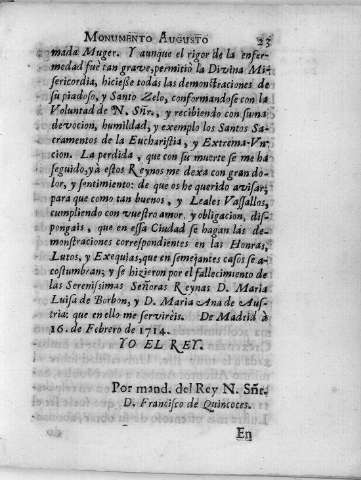 MONUMENTO AUGUSTO 23
mada Muger. Y aunque el rigor de la enfer-
medad fuè tan grave, permitiò la Divina Mi-
sericordia, hiciesse todas las demonstraciones de
su piadoso, y Santo Zelo, conformandose con la
Voluntad de N. Sñr. y recibiendo con suma
devocion, humildad, y exemplo los Santos Sa-
cramentos de la Eucharistia, y Extrema-Vn-
cion. La perdida, que con su muerte se me ha
seguido, y à estos Reynos me dexa con gran do-
lor, y sentimiento: de que os he querido avisar;
para que como tan buenos, y Leales Vassallos,
cumpliendo con vuestro amor, y obligacion, dis-
pongais, que en essa Ciudad se hagan las de-
monstraciones correspondientes en las Honras,
Lutos, y Exequias, que en semejantes casos se a-
costumbran; y se hizieron por el fallecimiento de
las Serenissimas Señoras Reynas D. Maria
Luisa de Borbon, y D. Maria Ana de Aus-
tria: que en ello me servirèis. De Madrid à
16. de Febrero de 1714.
YO EL REY.
Por mand. del Rey N. Sñr.
D. Francisco de Quincoces.
En